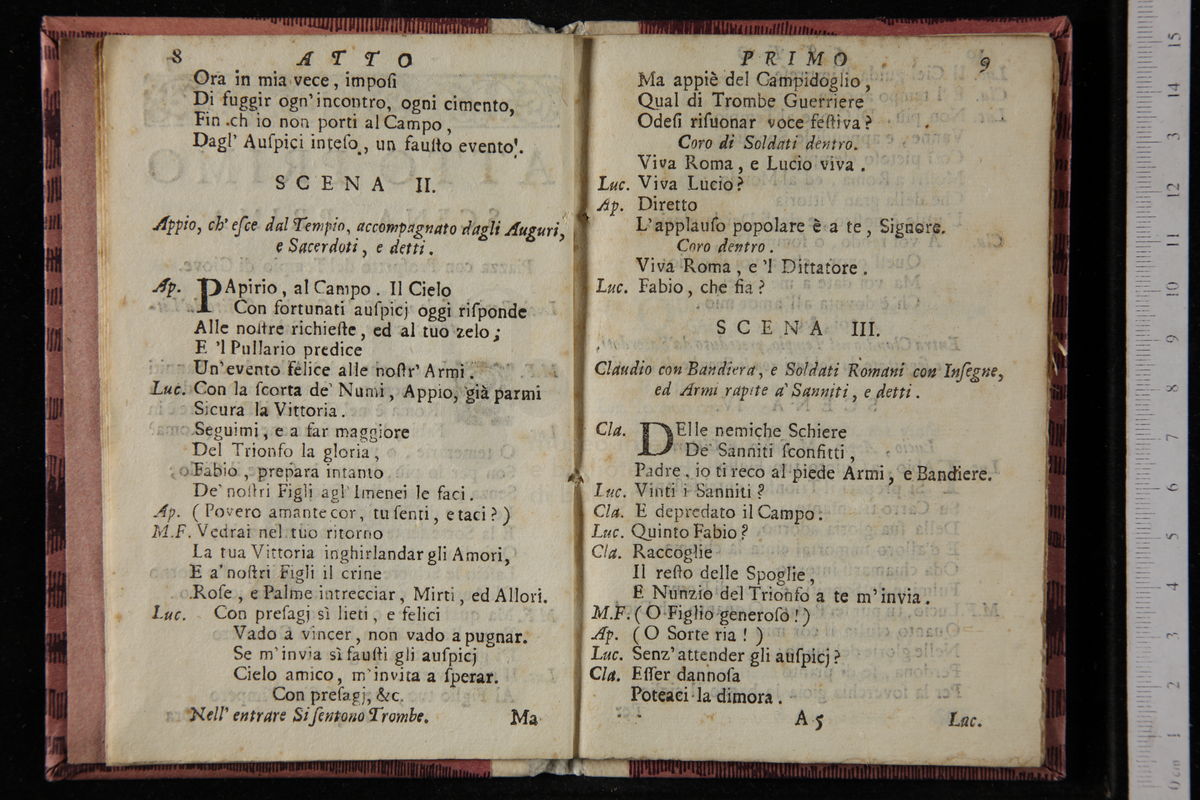 8 ATTO
Ora in mia vece, imposi
Di fuggir ogn' incontro, ogni cimento,
Fin ch io non porti al Campo,
Dagl' Auſpici inteſo, un fauſto evento.
SCENA II.
Appio, ch' eſce dal Tempio, accompagnato dagli Auguri,
e Sacerdoti, e detti.
Ap. PApirio, al Campo. Il Cielo
Con fortunati auſpicj oggi riſponde
Alle noſtre richieſte, ed al tuo zelo;
E 'l Pullario predice
Un' evento felice alle noſtr' Armi.
Luc. Con la ſcorta de' Numi, Appio, già parmi
Sicura la Vittoria.
Seguimi, e a far maggiore
Del Trionfo la gloria,
Fabio, prepara intanto
De' noſtri Figli agl' Imenei le faci.
Ap. (Povero amante cor, tu ſenti, e taci?)
M.F. Vedrai nel tuo ritorno
La tua Vittoria inghirlandar gli Amori,
E a' noſtri Figli il crine
Roſe, e Palme intrecciar, Mirti, ed Allori.
Luc. Con preſagj sì lieti, e felici
Vado a vincer, non vado a pugnar.
Se m' invia sì fauſti gli auſpicj
Cielo amico, m' invita a ſperar.
Con preſagj, &c.
Nell' entrare Si ſentono Trombe. Ma
PRIMO 9
Ma appiè del Campidoglio,
Qual di Trombe Guerriere
Odeſi riſuonar voce feſtiva?
Coro di Soldati dentro.
Viva Roma, e Lucio viva.
Luc. Viva Lucio?
Ap. Diretto
L' applauſo popolare è a te, Signore.
Coro dentro.
Viva Roma, e 'l Dittatore.
Luc. Fabio, che fia?
SCENA III.
Claudio con Bandiera, e Soldati Romani con Inſegne,
ed Armi rapite a' Sanniti, e detti.
Cla. DElle nemiche Schiere
De' Sanniti ſconfitti,
Padre, io ti reco al piede Armi, e Bandiere.
Luc. Vinti i Sanniti?
Cla. E depredato il Campo.
Luc. Quinto Fabio?
Cla. Raccoglie
Il reſto delle Spoglie,
E Nunzio del Trionfo a te m' invia.
M.F. (O Figlio generoſo!)
Ap. (O Sorte ria!)
Luc. Senz' attender gli auſpicj?
Cla. Eſſer dannoſa
Poteaci la dimora.
A 5 Luc.
0 cm 1 2 3 4 5 6 7 8 9 10 11 12 13 14 15